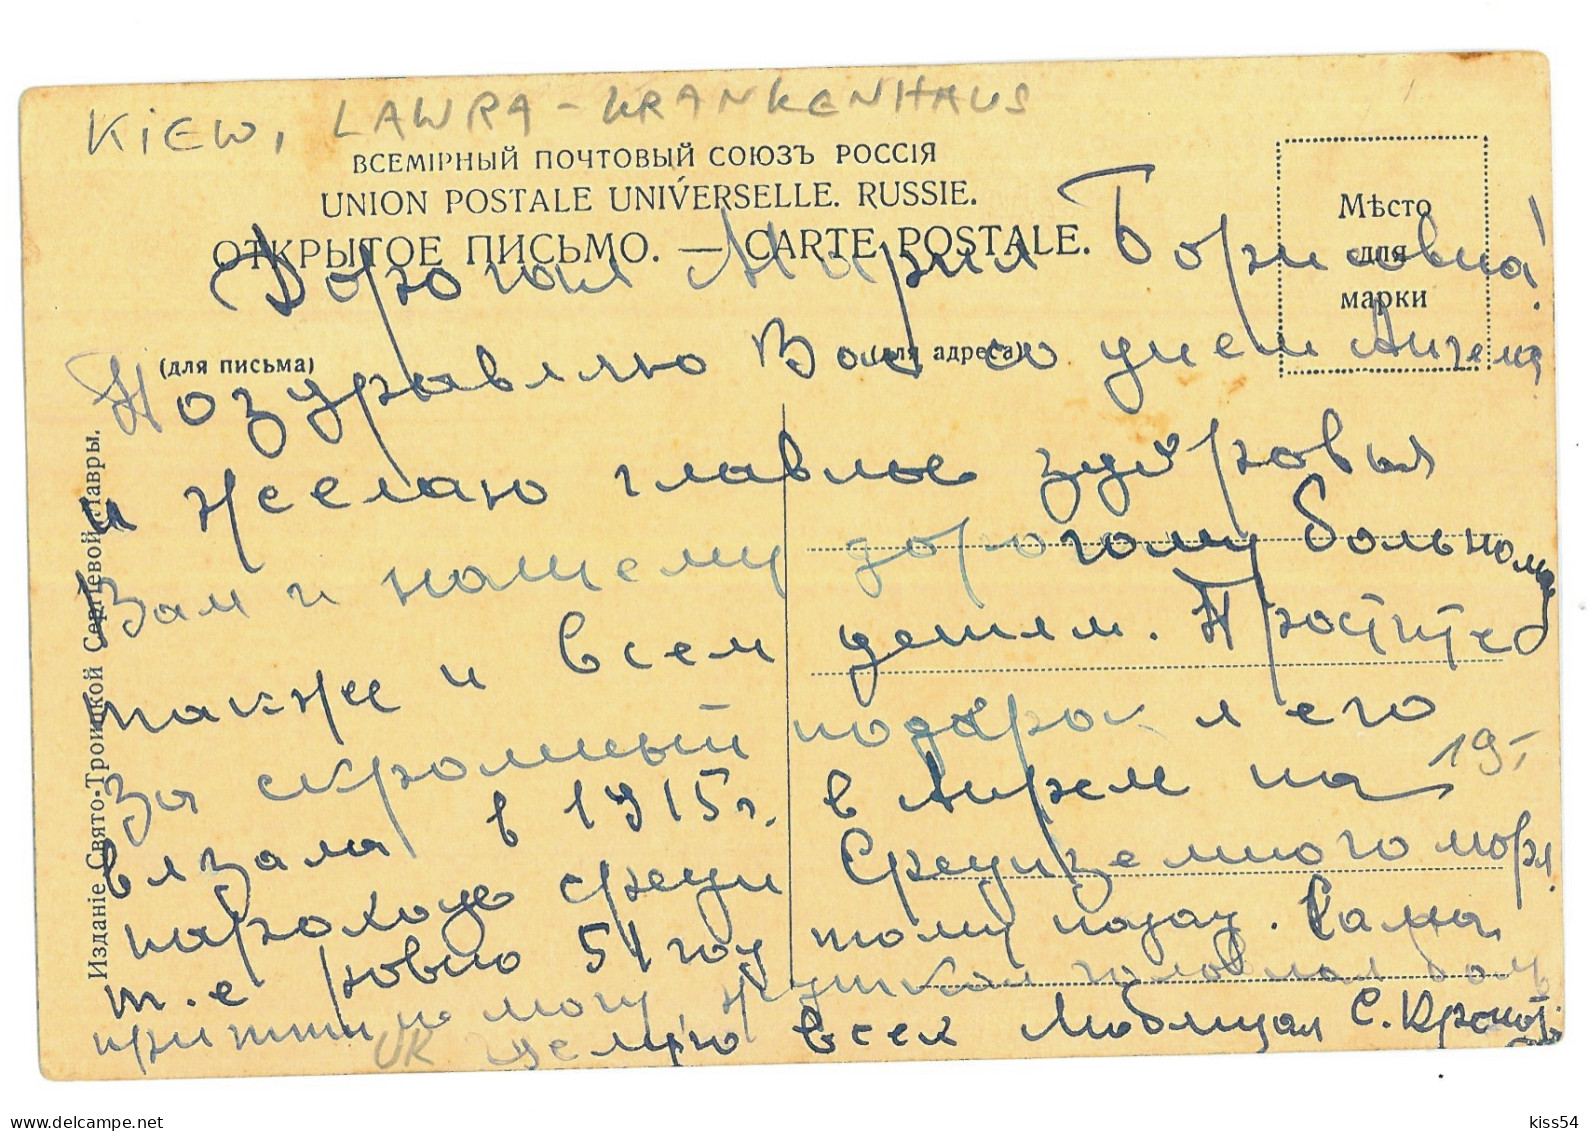 KiEW, LAWRA - KRANKENHAUS
ВСЕМІРНЫЙ ПОЧТОВЫЙ СОЮЗЪ РОССІЯ
UNION POSTALE UNIVERSELLE. RUSSIE.
ОТКРЫТОЕ ПИСЬМО. — CARTE POSTALE.
Мѣсто
для
марки
(для письма)
(для адреса)
Изданіе Свято-Троицкой Сергіевой Лавры.
Дорогая Мария Борисовна!
Поздравляю Вас со днем Ангела
и желаю главное здоровья
Вам и нашему дорогому больному
также и всем детям. Простите
за скромный подарок я его
вязала в 1915 г. в Апреле на
19
пароходе среди Средиземного моря
т.е ровно 51 год тому назад. Сама
притти не могу, головная боль
целую всех Любящая С.
UK
delcampe.net
kiss54